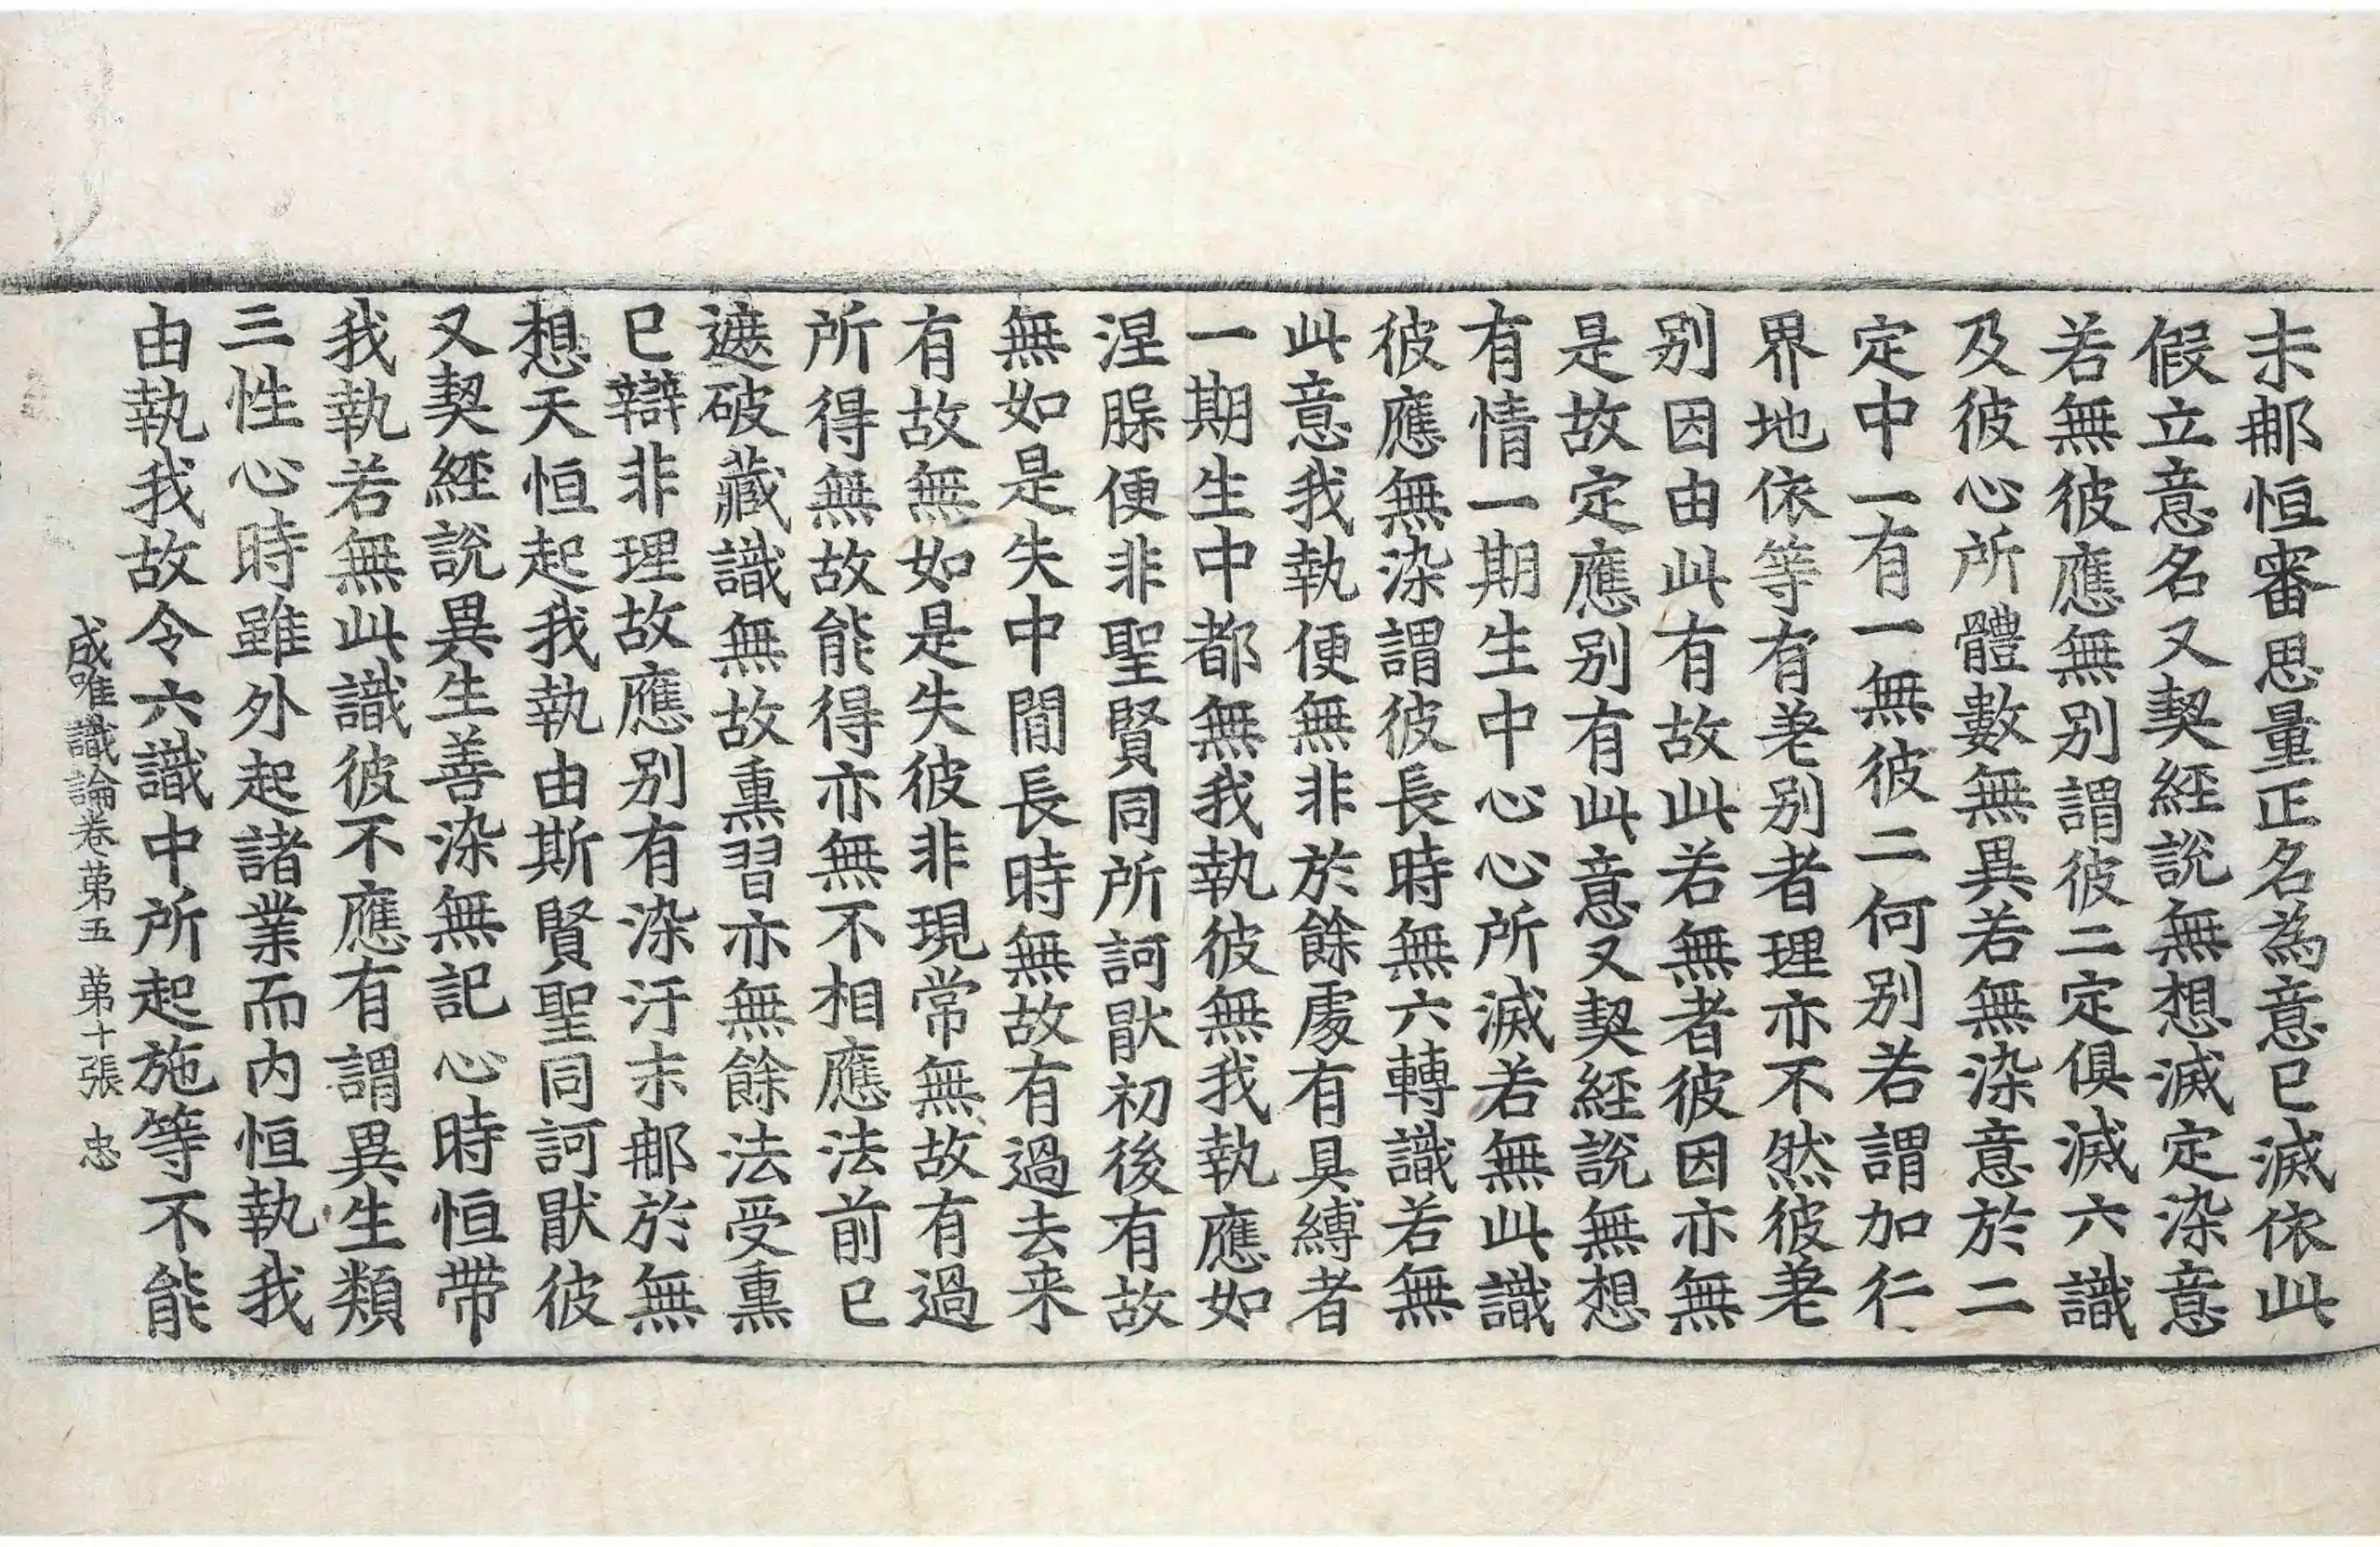 末䣋恒審思量正名為意已滅依此
假立意名又契經說無想滅定染意
若無彼應無别謂彼二定俱滅六識
及彼心所體數無異若無染意於二
定中一有一無彼二何别若謂加行
界地依等有差别者理亦不然彼差
别因由此有故此若無者彼因亦無
是故定應别有此意又契經說無想
有情一期生中心心所滅若無此識
彼應無染謂彼長時無六轉識若無
此意我執便無非於餘處有具縛者
一期生中都無我執彼無我執應如
涅槃便非聖賢同所訶猒初後有故
無如是失中間長時無故有過去来
有故無如是失彼非現常無故有過
所得無故能得亦無不相應法前已
遮破藏識無故熏習亦無餘法受熏
已辯非理故應别有染汙末䣋於無
想天恒起我執由斯賢聖同訶猒彼
又契經說異生善染無記心時恒帶
我執若無此識彼不應有謂異生類
三性心時雖外起諸業而内恒執我
由執我故令六識中所起施等不能
成唯識論卷第五 第十張 忠